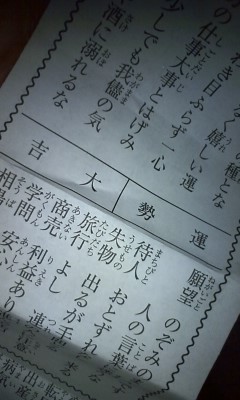 の種とな
なく嬉しい運
わき目ふらず一心
の仕事大事とはげみ
少しでも我儘の気
酒に溺れるな
運勢
大吉
願望 のぞみの
人の言葉
待人 おとずれ
失物 出るが手
旅行 よし 連
商売 利益あり
学問 安心
相場